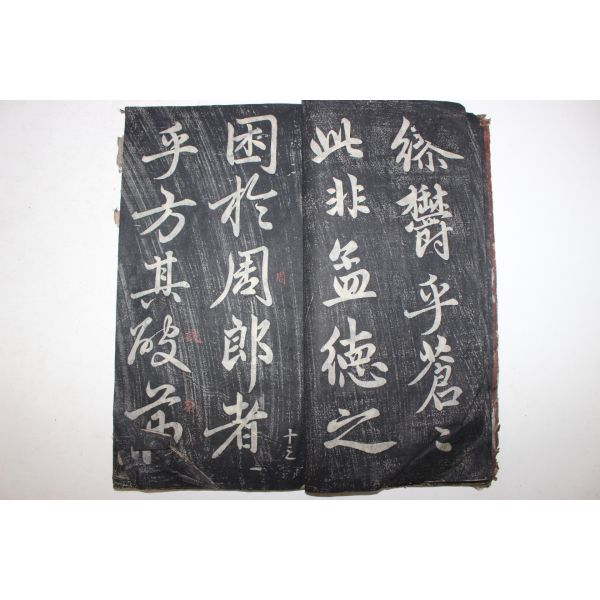 繆鬱乎蒼〻
此非孟徳之
十三
困於周郎者
乎方其破荊